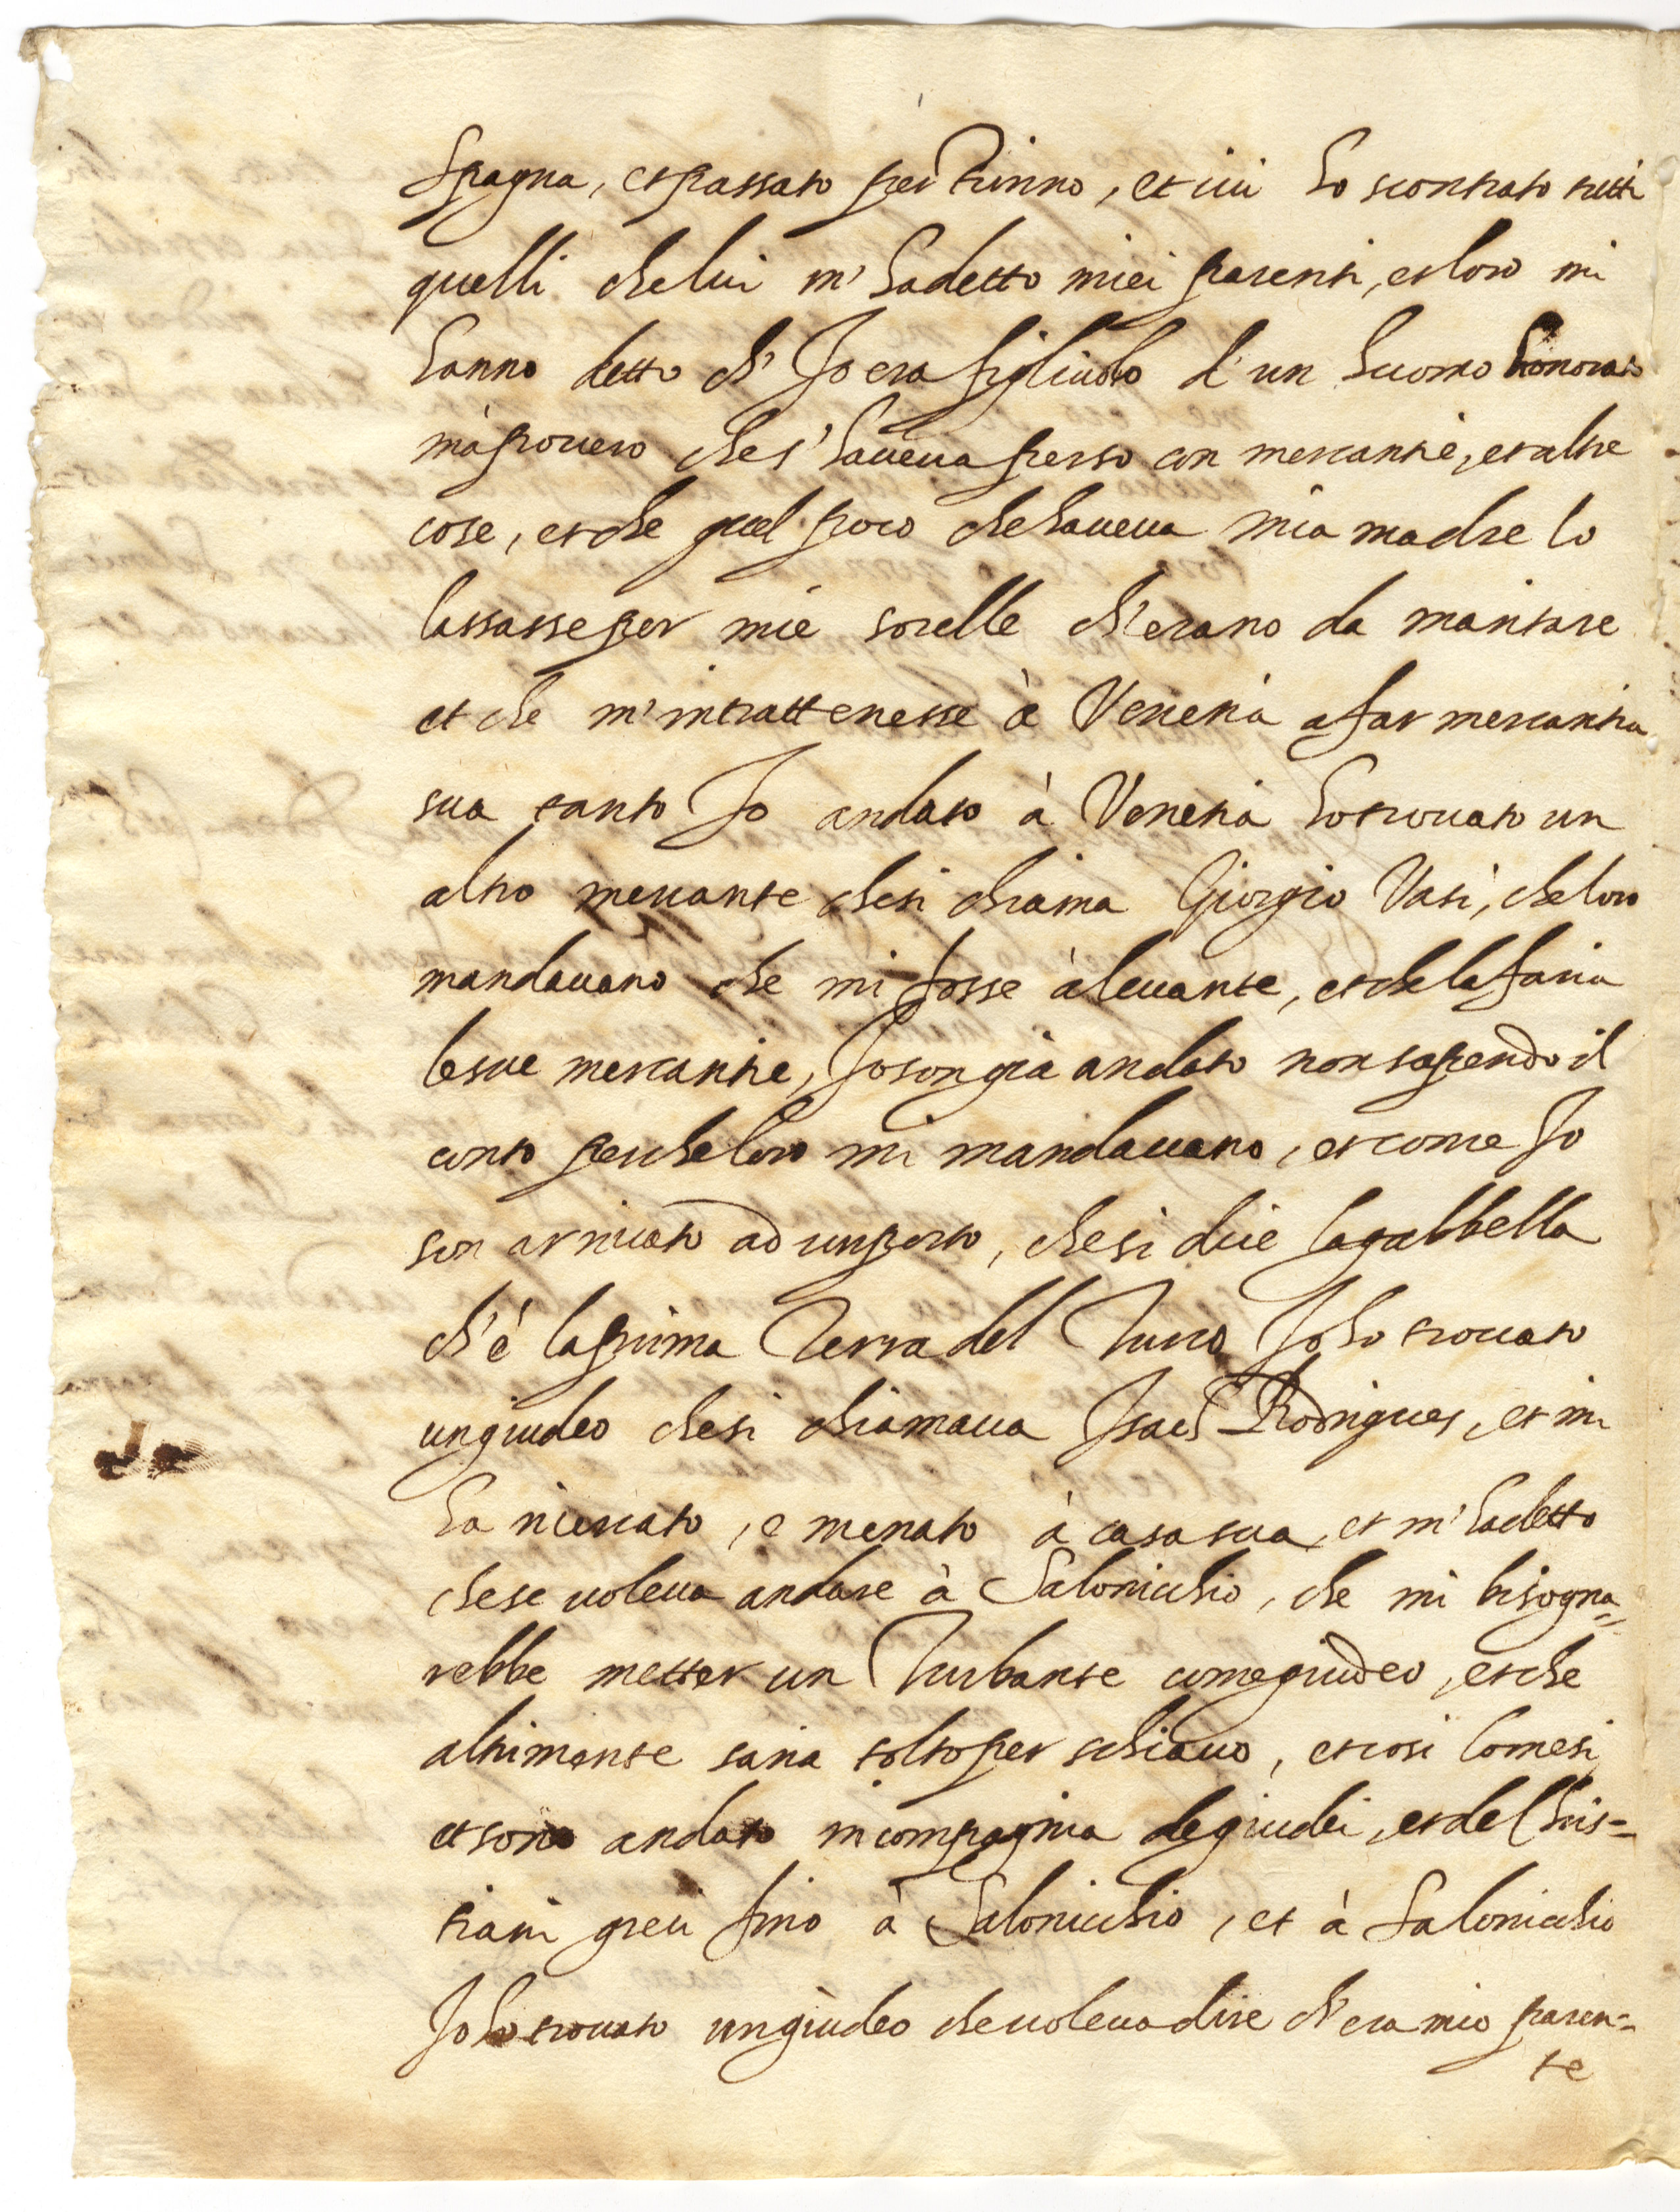 spagna, et passato per Turino, et iui ho scontrato tutti
quelli che lui m' ha detto miei parenti, et loro mi
hanno detto ch' Io era figliuolo d' un huomo honorato
mà pouero che s' haueua perso con mercantie, et altre
cose, et che quel poco che haueua mia madre lo
lassasse per mie sorelle ch' erano da maritare
et che m' intrattenesse à Venetia a far mercantia
sua tanto Io andato à Venetia ho trouato un
altro mercante che si chiama Giorgio Vasi, che loro
mandauano che mi fosse à leuante, et che la faria
le sue mercantie, Io son già andato non sapendo il
conto perche loro mi mandauano, et come Io
son arriuato ad un porto, che si dice la gabbella
ch' è la prima Terra del Turco Io ho trouato
un giudeo che si chiamaua Isach Rodrigues, et mi
ha ricercato, e menato à casa sua, et m' ha detto
che se uoleua andare à Salonicchio, che mi bisogna=
rebbe metter un Turbante come giudeo, et che
altrimente saria tolto per schiauo, et cosi lo mesi
et sono andato in compagnia de giudei, et del Chris=
tiani greci fino à Salonicchio, et à Salonicchio
Io ho trouato un giudeo che uoleua dire ch' era mio paren=
te